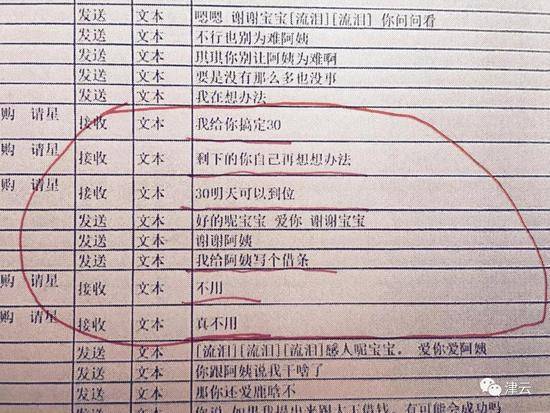 发送 文本 嗯嗯 谢谢宝宝[流泪][流泪] 你问问看
发送 文本 不行也别为难阿姨
发送 文本 琪琪你别让阿姨为难啊
发送 文本 要是没有那么多也没事
发送 文本 我在想办法
购 请星 接收 文本 我给你搞定30
购 请星 接收 文本 剩下的你自己再想想办法
购 请星 接收 文本 30明天可以到位
发送 文本 好的呢宝宝 爱你 谢谢宝宝
发送 文本 谢谢阿姨
发送 文本 我给阿姨写个借条
购 请星 接收 文本 不用
购 请星 接收 文本 真不用
发送 文本 [流泪][流泪][流泪]感人呢宝宝。 爱你爱阿姨
发送 文本 你跟阿姨说我干啥了
发送 文本 那你还爱鹿晗不
你说 如果我提出来跟大王借钱，有可能会成功吗
津云